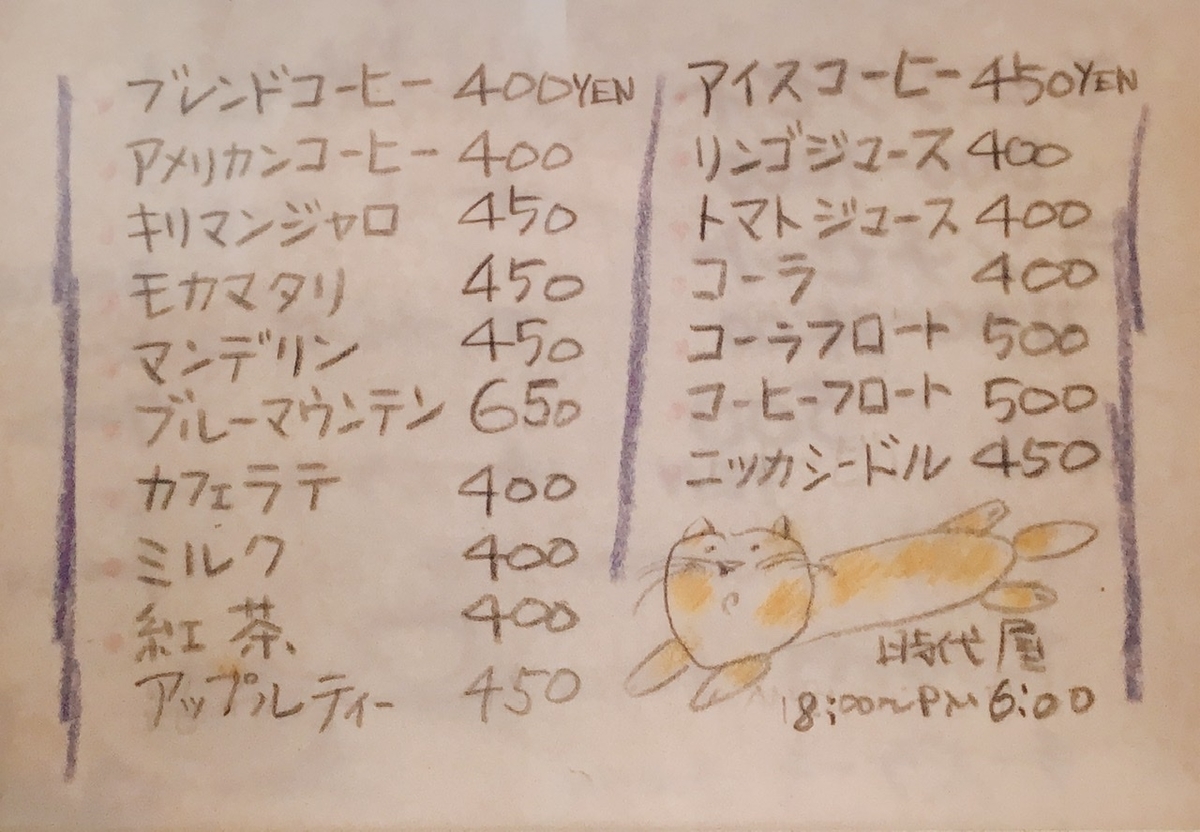 ブレンドコーヒー 400YEN
アメリカンコーヒー 400
キリマンジャロ 450
モカマタリ 450
マンデリン 450
ブルーマウンテン 650
カフェラテ 400
ミルク 400
紅茶 400
アップルティー 450
アイスコーヒー 450YEN
リンゴジュース 400
トマトジュース 400
コーラ 400
コーラフロート 500
コーヒーフロート 500
ニッカシードル 450
時代屋
8:00~PM6:00